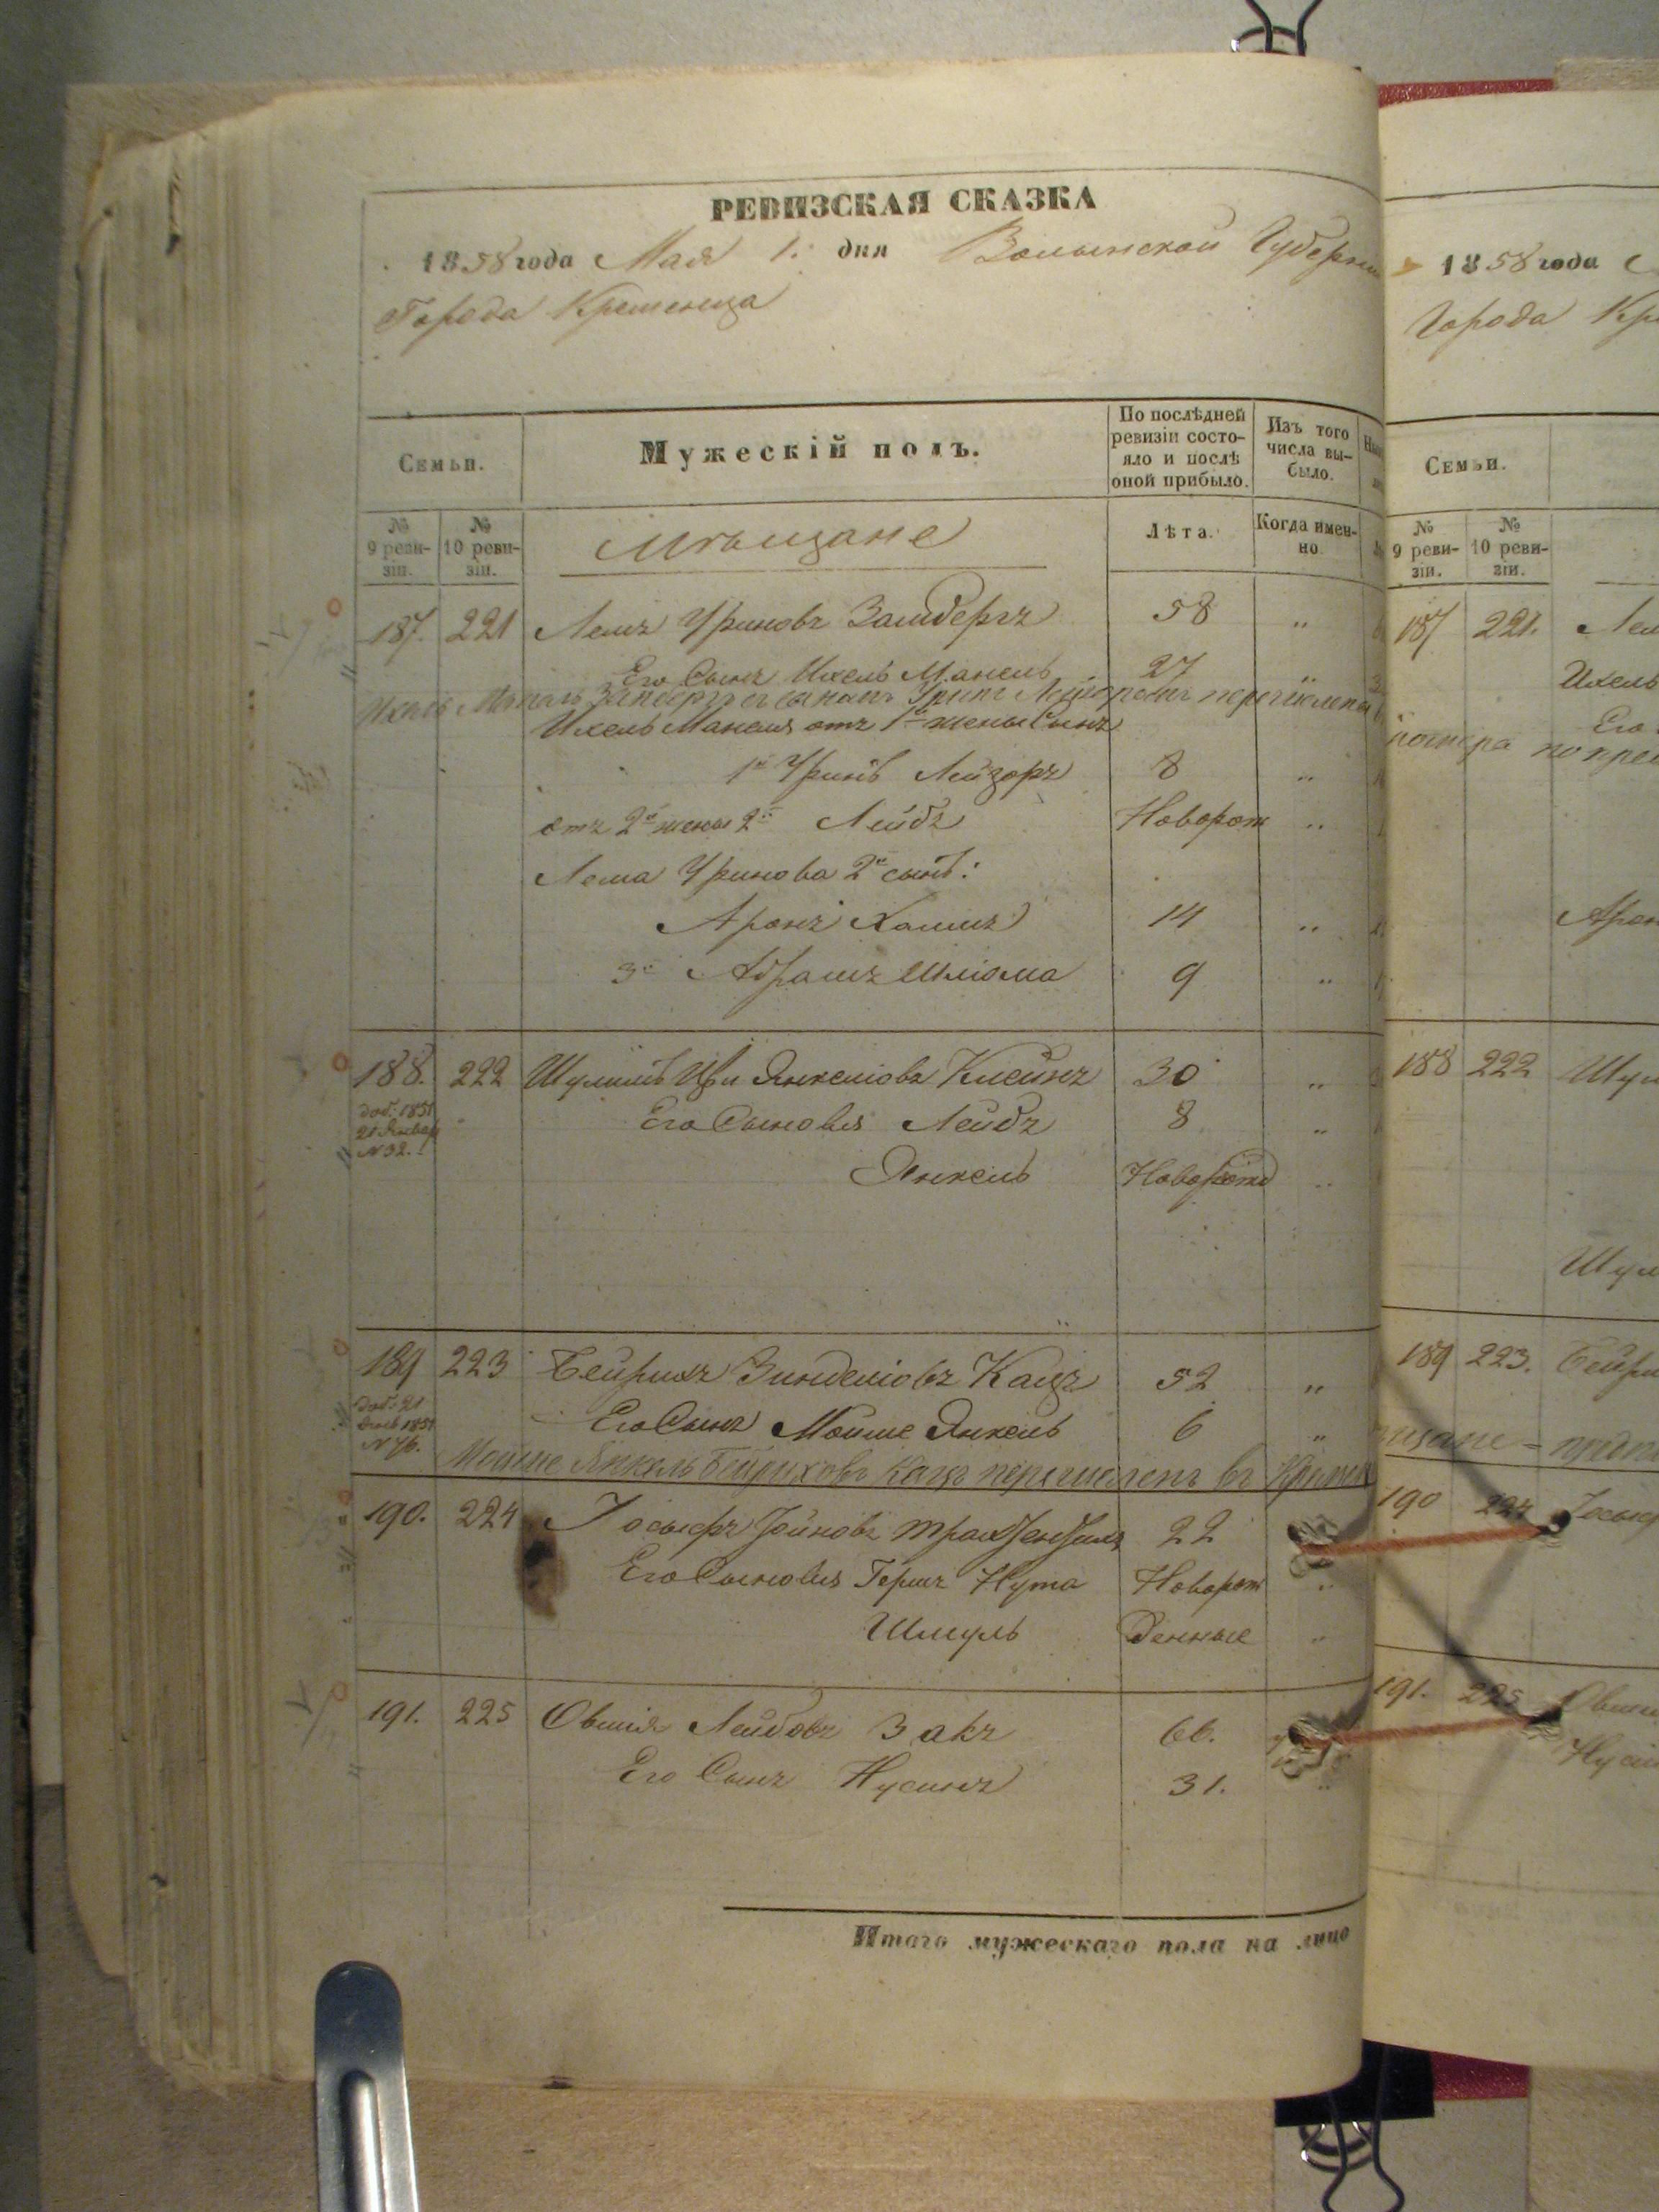 РЕВИЗСКАЯ СКАЗКА
1858 года Мая 1. дня Волынской Губернии
Города Кременца
Семьи.
Мужескій полъ.
По послѣдней ревизіи состо-
яло и послѣ
оной прибыло.
Изъ того
числа вы-
было.
№
9 реви-
зіи.
№
10 реви-
зіи.
Мѣщане
Лѣта.
Когда имен-
но.
187. 221 Лемъ Уриновъ Замбергъ 58 "
Его Сынъ Ихель Манель 27 "
Ихель Манель Замбергъ съ сыномъ Уринъ Лейзоромъ перечислены
Ихель Манеля отъ 1й жены Сынъ
1й Уринъ Лейзоръ 8 "
отъ 2й жены 2й Лейбъ Новорож "
Лема Уринова 2й сынъ:
Аронъ Хаимъ 14 "
3й Абрамъ Шліома 9 "
188. 222 Шулимъ Цви Янкеліовъ Клейнъ 30 "
доб. 1851
21 Январ
N 32.
Его Сыновья Лейбъ 8 "
Янкель Новорожд "
189 223 Бейрихъ Зинделіовъ Кацъ 52 "
доб. 21
1851
N 76.
Его Сынъ Мошме Янкель 6 "
Мошме Янкель Бейриховъ Кацъ перечисленъ въ Кремен
190. 224 Іосифъ Іойновъ 22
Его Сыновья Гершъ Нута Новорож "
Шмуль денные "
191. 225 Овшія Лейбовъ Закъ 66.
Его Сынъ Нусинъ 31. "
Итого мужескаго пола на лицо
1858 года
Города Кр
Семьи.
№
9 реви-
зіи.
№
10 реви-
зіи.
187 221. Лем
Ихель
Его
по пред
Арон
188 222 Шул
Шул
189 223. Бейри
190 224 Іосиф
191. 225 Овши
Нуси